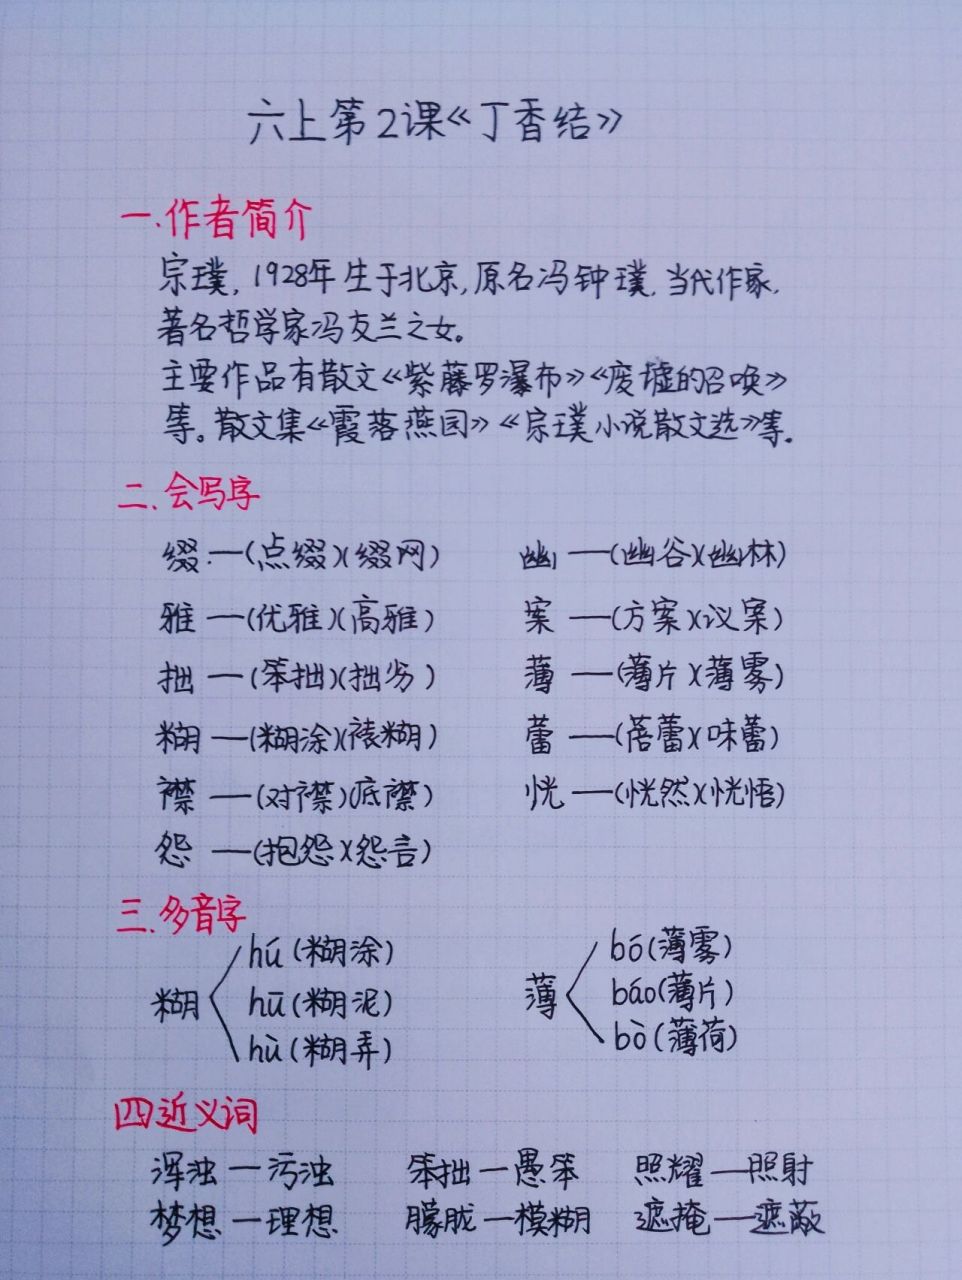 六上第2课《丁香结》
一.作者简介
宗璞,1928年生于北京,原名冯钟璞.当代作家,
著名哲学家冯友兰之女。
主要作品有散文《紫藤罗瀑布》《废墟的召唤》
等。散文集《霞落燕园》《宗璞小说散文选》等.
二.会写字
缀—(点缀)(缀网) 幽—(幽谷)(幽林)
雅—(优雅)(高雅) 案—(方案)(议案)
拙—(笨拙)(拙劣) 薄—(薄片)(薄雾)
糊—(糊涂)(裱糊) 蕾—(蓓蕾)(味蕾)
襟—(对襟)(底襟) 恍—(恍然)(恍悟)
怨—(抱怨)(怨言)
三.多音字
糊 hú(糊涂) 薄 bó(薄雾)
hū(糊泥) báo(薄片)
hù(糊弄) bò(薄荷)
四近义词
浑浊—污浊 笨拙—愚笨 照耀—照射
梦想—理想 朦胧—模糊 遮掩—遮蔽